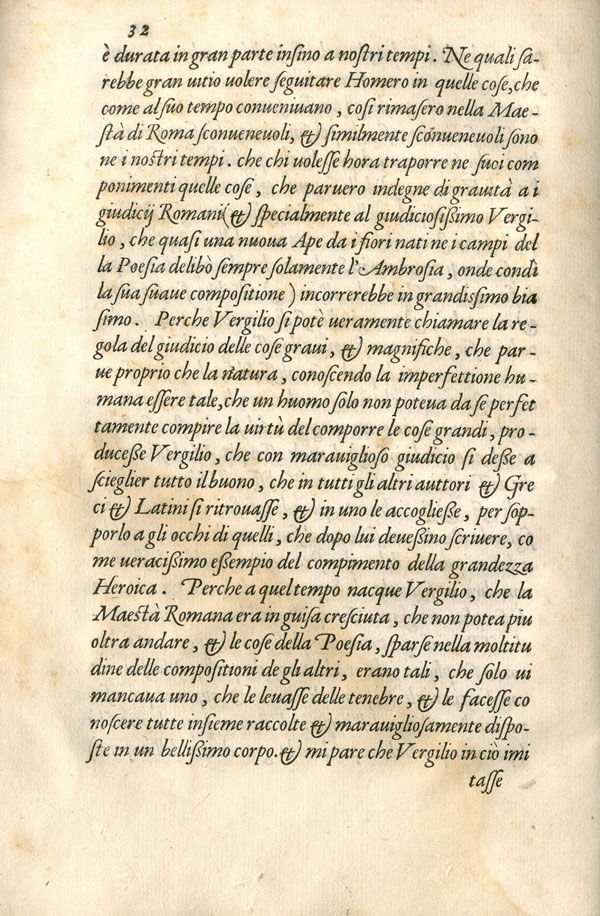 32
è durata in gran parte insino a nostri tempi. Ne quali sa-
rebbe gran uitio uolere seguitare Homero in quelle cose, che
come al suo tempo conueniuano, cosi rimasero nella Mae-
stà di Roma sconueneuoli, & similmente scōueneuoli sono
ne i nostri tempi. che chi uolesse hora traporre ne suoi com
ponimenti quelle cose, che paruero indegne di grauità a i
giudicij Romani (& specialmente al giudiciosissimo Vergi-
lio, che quasi una nuoua Ape da i fiori nati ne i campi del
la Poesia delibò sempre solamente l'Ambrosia, onde condì
la sua suaue compositione) incorrerebbe in grandissimo bia
simo. Perche Vergilio si potè ueramente chiamare la re-
gola del giudicio delle cose graui, & magnifiche, che par-
ue proprio che la natura, conoscendo la imperfettione hu-
mana essere tale, che un huomo solo non poteua da se perfet
tamente compire la uirtù del comporre le cose grandi, pro-
ducesse Vergilio, che con marauiglioso giudicio si desse a
scieglier tutto il buono, che in tutti gli altri auttori & Gre
ci & Latini si ritrouasse, & in uno le accogliesse, per sop-
porlo a gli occhi di quelli, che dopo lui deuessino scriuere, co
me ueracissimo essempio del compimento della grandezza
Heroica. Perche a quel tempo nacque Vergilio, che la
Maestà Romana era in guisa cresciuta, che non potea piu
oltra andare, & le cose della Poesia, sparse nella moltitu
dine delle compositioni de gli altri, erano tali, che solo ui
mancaua uno, che le leuasse delle tenebre, & le facesse co
noscere tutte insieme raccolte & marauigliosamente dispo-
ste in un bellissimo corpo. & mi pare che Vergilio in ciò imi
tasse